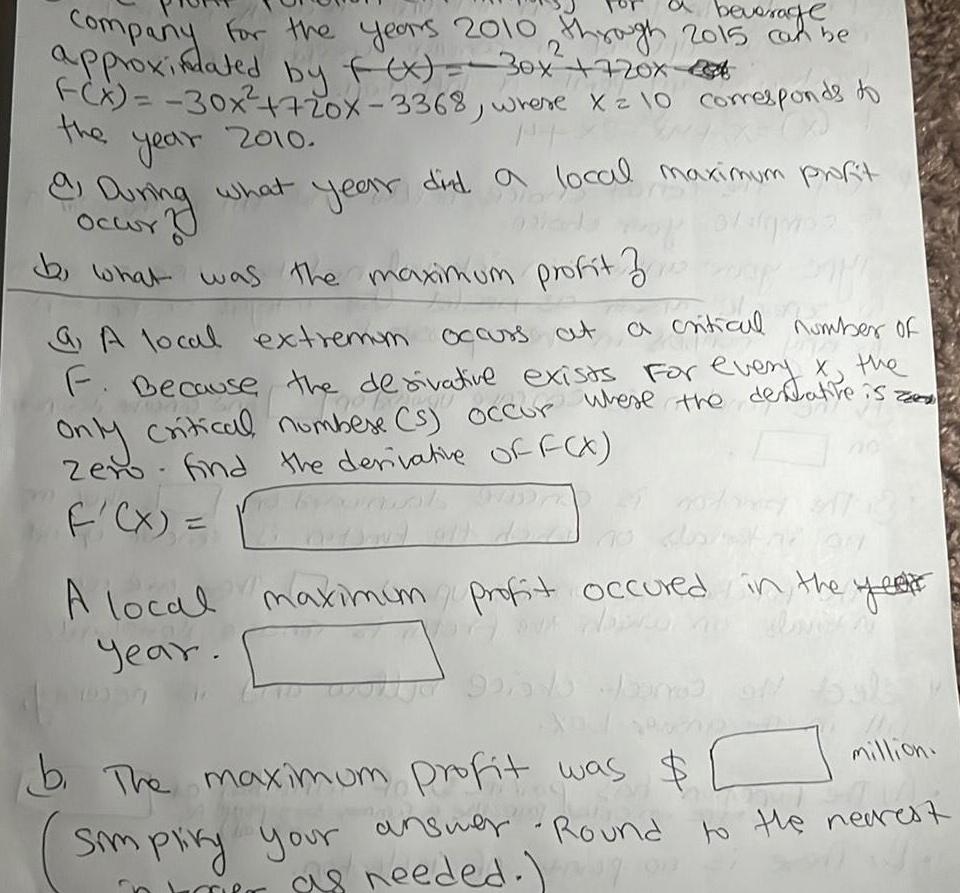 profit for a beverage
company for the years 2010 through 2015 can be
approximated by f(x) = -30x²+720x
F(x) = -30x²+720x-3368, where x=10 corresponds to
the year 2010.
a, During what year did a local maximum profit
occur?
b, what was the maximum profit?
a, A local extremum occurs at a critical number of
F. Because the derivative exists For every x, the
only critical numbere (s) occur where the derivative is zero
zero. find the derivative of F(x)
F'(x) =
A local maximum profit occured in the year
year.
b. The maximum profit was $ million.
(simplify your answer. Round to the nearest
integer as needed.)